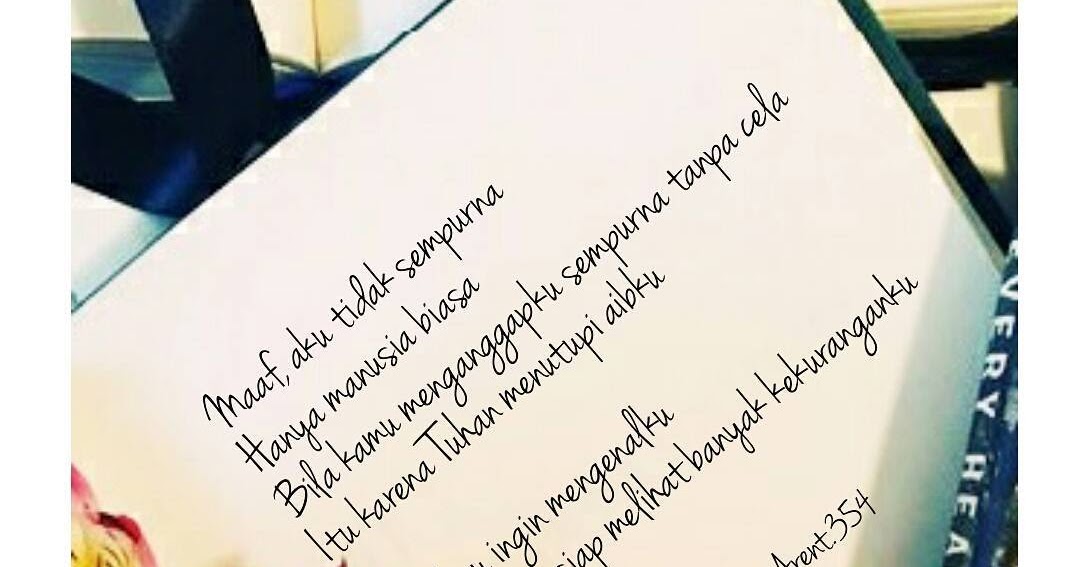 Maaf, aku tidak sempurna
Hanya manusia biasa
Bila kamu menganggapku sempurna tanpa cela
Itu karena Tuhan menutupi aibku
ingin mengenalku
siap melihat banyak kekuranganku
Arent.354
VERY HEA